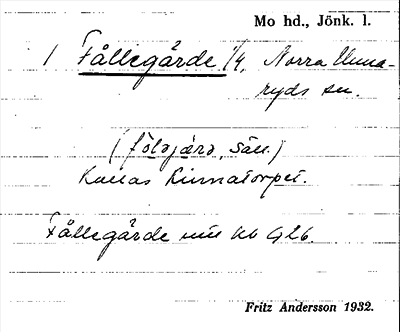 Mo hd., Jönk. l.
1 Fållegärde 1/4, Norra Unna-
ryds sn.
(fölajärə, säll.)
Kallas Kinnatorpet.
Fållegärde
Fritz Andersson 1932.